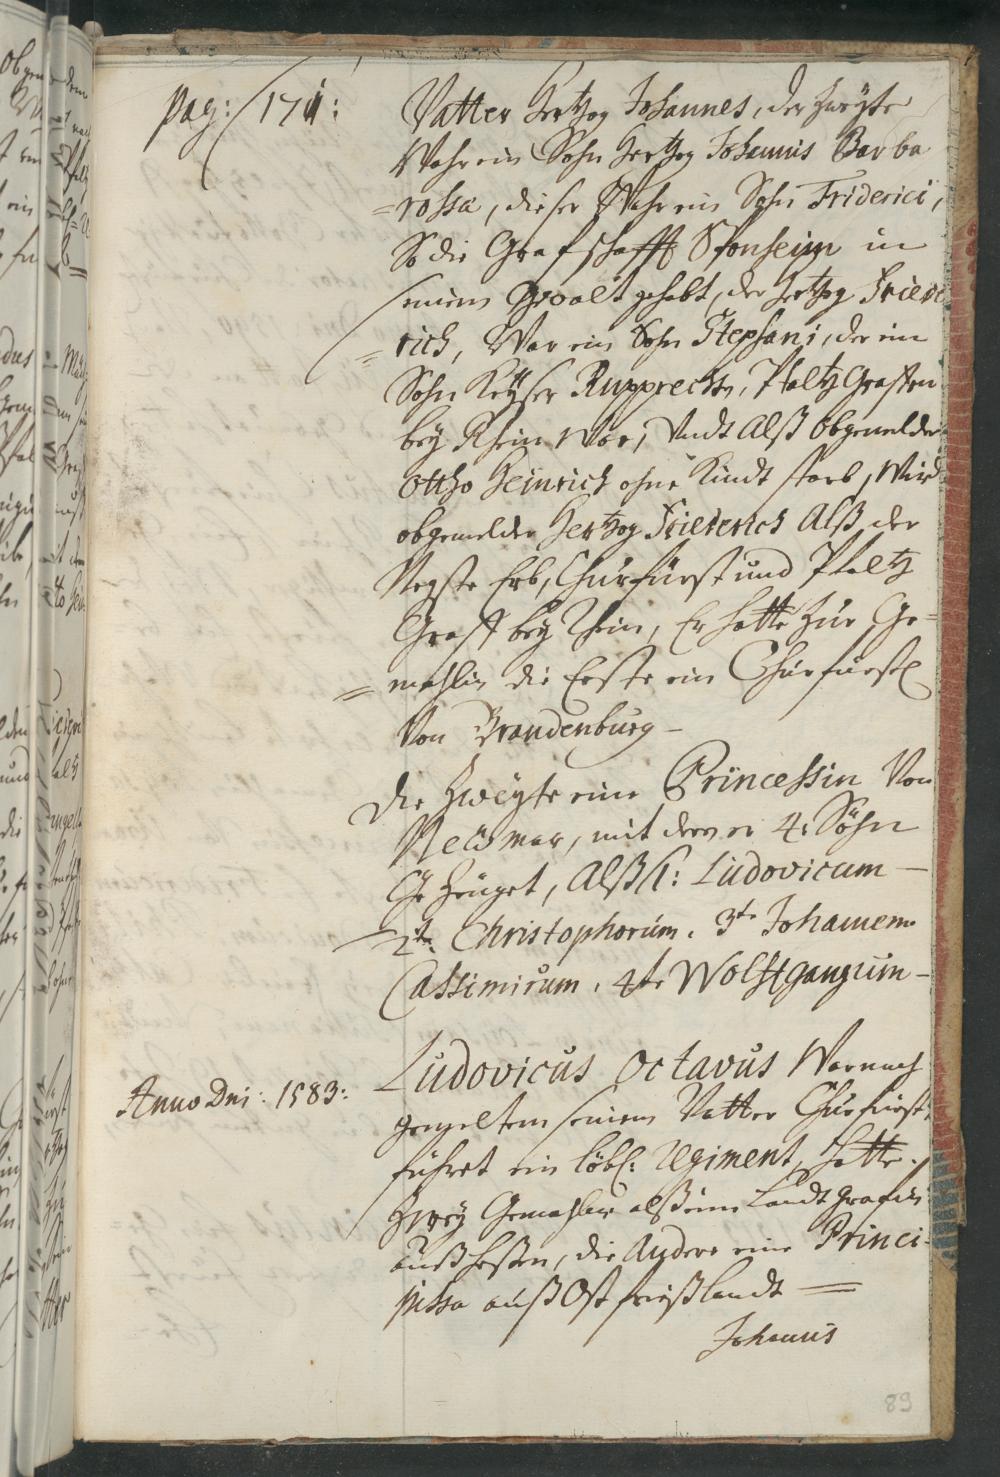 pag: 171:
Vatter Hertzog Johannes, der Zweÿte
Wahr ein Sohn Hertzog Johannis Barba
=rossa, dieser Wahr ein Sohn Friderici,
So die Graffschafft Sponheim in
seinem Gewalt gehabt, der Hertzog Fried
=rich, War ein Sohn Stephani, der ein
Sohn Keÿser Rupprechts, Pfaltz Graffen
beÿ Rhein War, Undt Alß obgemelder
Ottho Heinrich ohne Kindt starb, Wird
obgemelder Hertzog Friederich Alß der
Negste Erb, Churfürst und Pfaltz
Graff beÿ Rhein, Er hatte zur Ge=
=mahlin die Erste ein Churfürstl
Von Brandenburg –
Die Zweÿte eine Princessin Von
mit deren er 4: Söhn
Gezeuget, Alß 1: Ludovicum –
2te Christophorum. 3te Johannem
Cassimirum. 4te Wolffgangum –
Anno Dni: 1583:
Ludovicus Octavus War nach
seinem Vatter Churfürst,
führet ein löbl: Regiment, hatte
Zweÿ Gemahlin alß eine Landtgräfin
auß Heßen, die Andere eine Princi=
pissa auß Ostfrießlandt =
Johannis
89